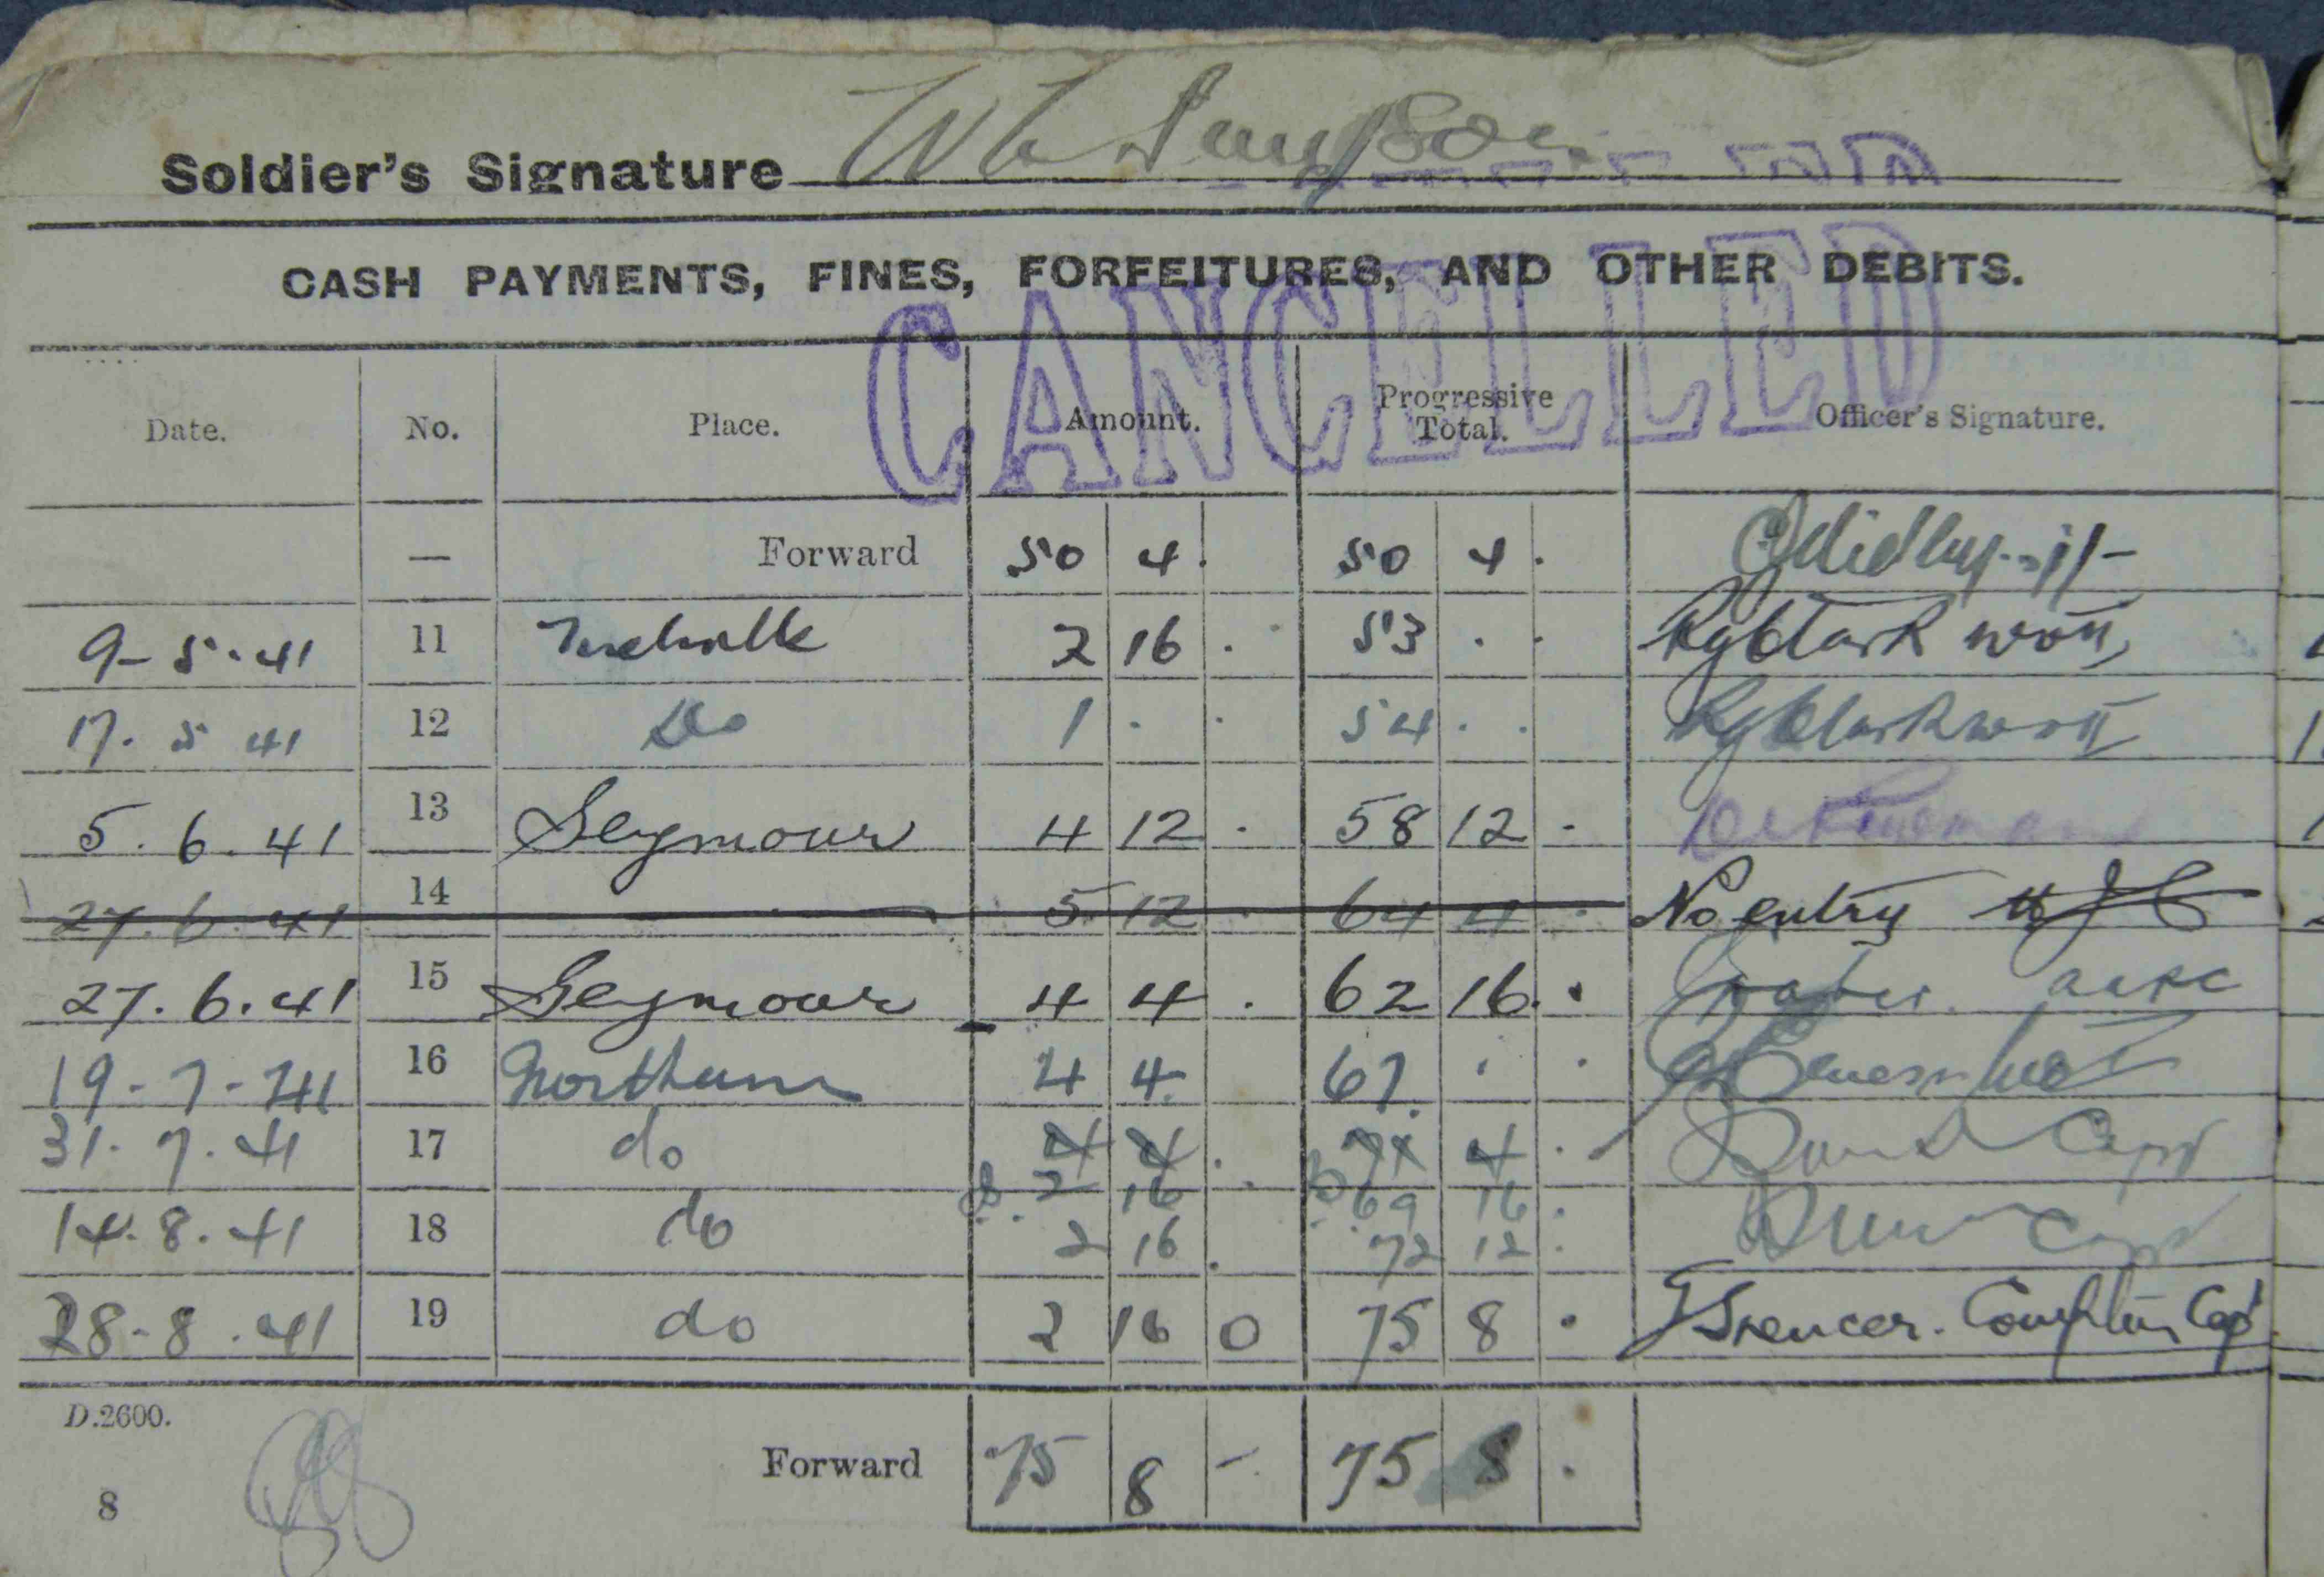 Soldier's Signature W C Simpson
CASH PAYMENTS, FINES, FORFEITURES, AND OTHER DEBITS.
CANCELLED
Date. No. Place. Amount. Progressive Total. Officer's Signature.
— Forward 50 4 . 50 4 .
9-5-41 11 2 16 . 53 . .
17. 5 41 12 Do 1 . . 54 . .
5.6.41 13 Seymour 4 12 . 58 12 .
27.6.41 14 5. 12 . 64 4 . No entry
27.6.41 15 Seymour 4 4 . 62 16 . aapc
19-7-41 16 Northam 4 4. 67. . .
31.7.41 17 do 4 4 . 71 4 . Capt
2 16 . 69 16 .
14.8.41 18 do 2 16 . 72 12 . Capt
28-8.41 19 do 2 16 0 75 8 . Spencer. Compton Capt
D.2600.
Forward 75 8 - 75 8 .
8